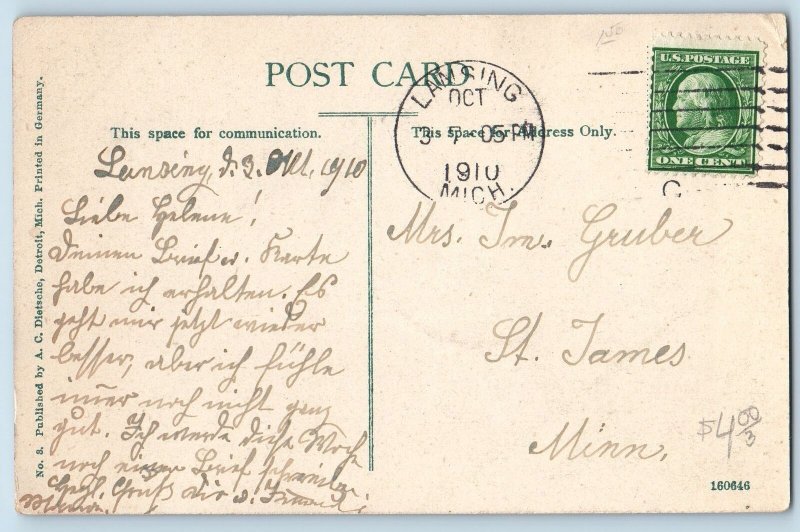 1.50
POST CARD
This space for communication.
This space for Address Only.
LANSING
OCT
3 - 7 05 PM
1910
MICH.
U.S. POSTAGE
ONE CENT
C
Lansing, d. 3. Okt. 1910
Liebe Helene!
Deinen Brief u. Karte
habe ich erhalten. Es
geht mir jetzt wieder
besser, aber ich fühle
im̅er noch nicht ganz
gut. Ich werde diese Woche
noch einen Brief schreiben.
Herzl. Gruß Dir u.
Mrs. Im. Gruber
St. James
Minn.
$4.00
3
160646
No. 3. Published by A. C. Dietsche, Detroit, Mich. Printed in Germany.